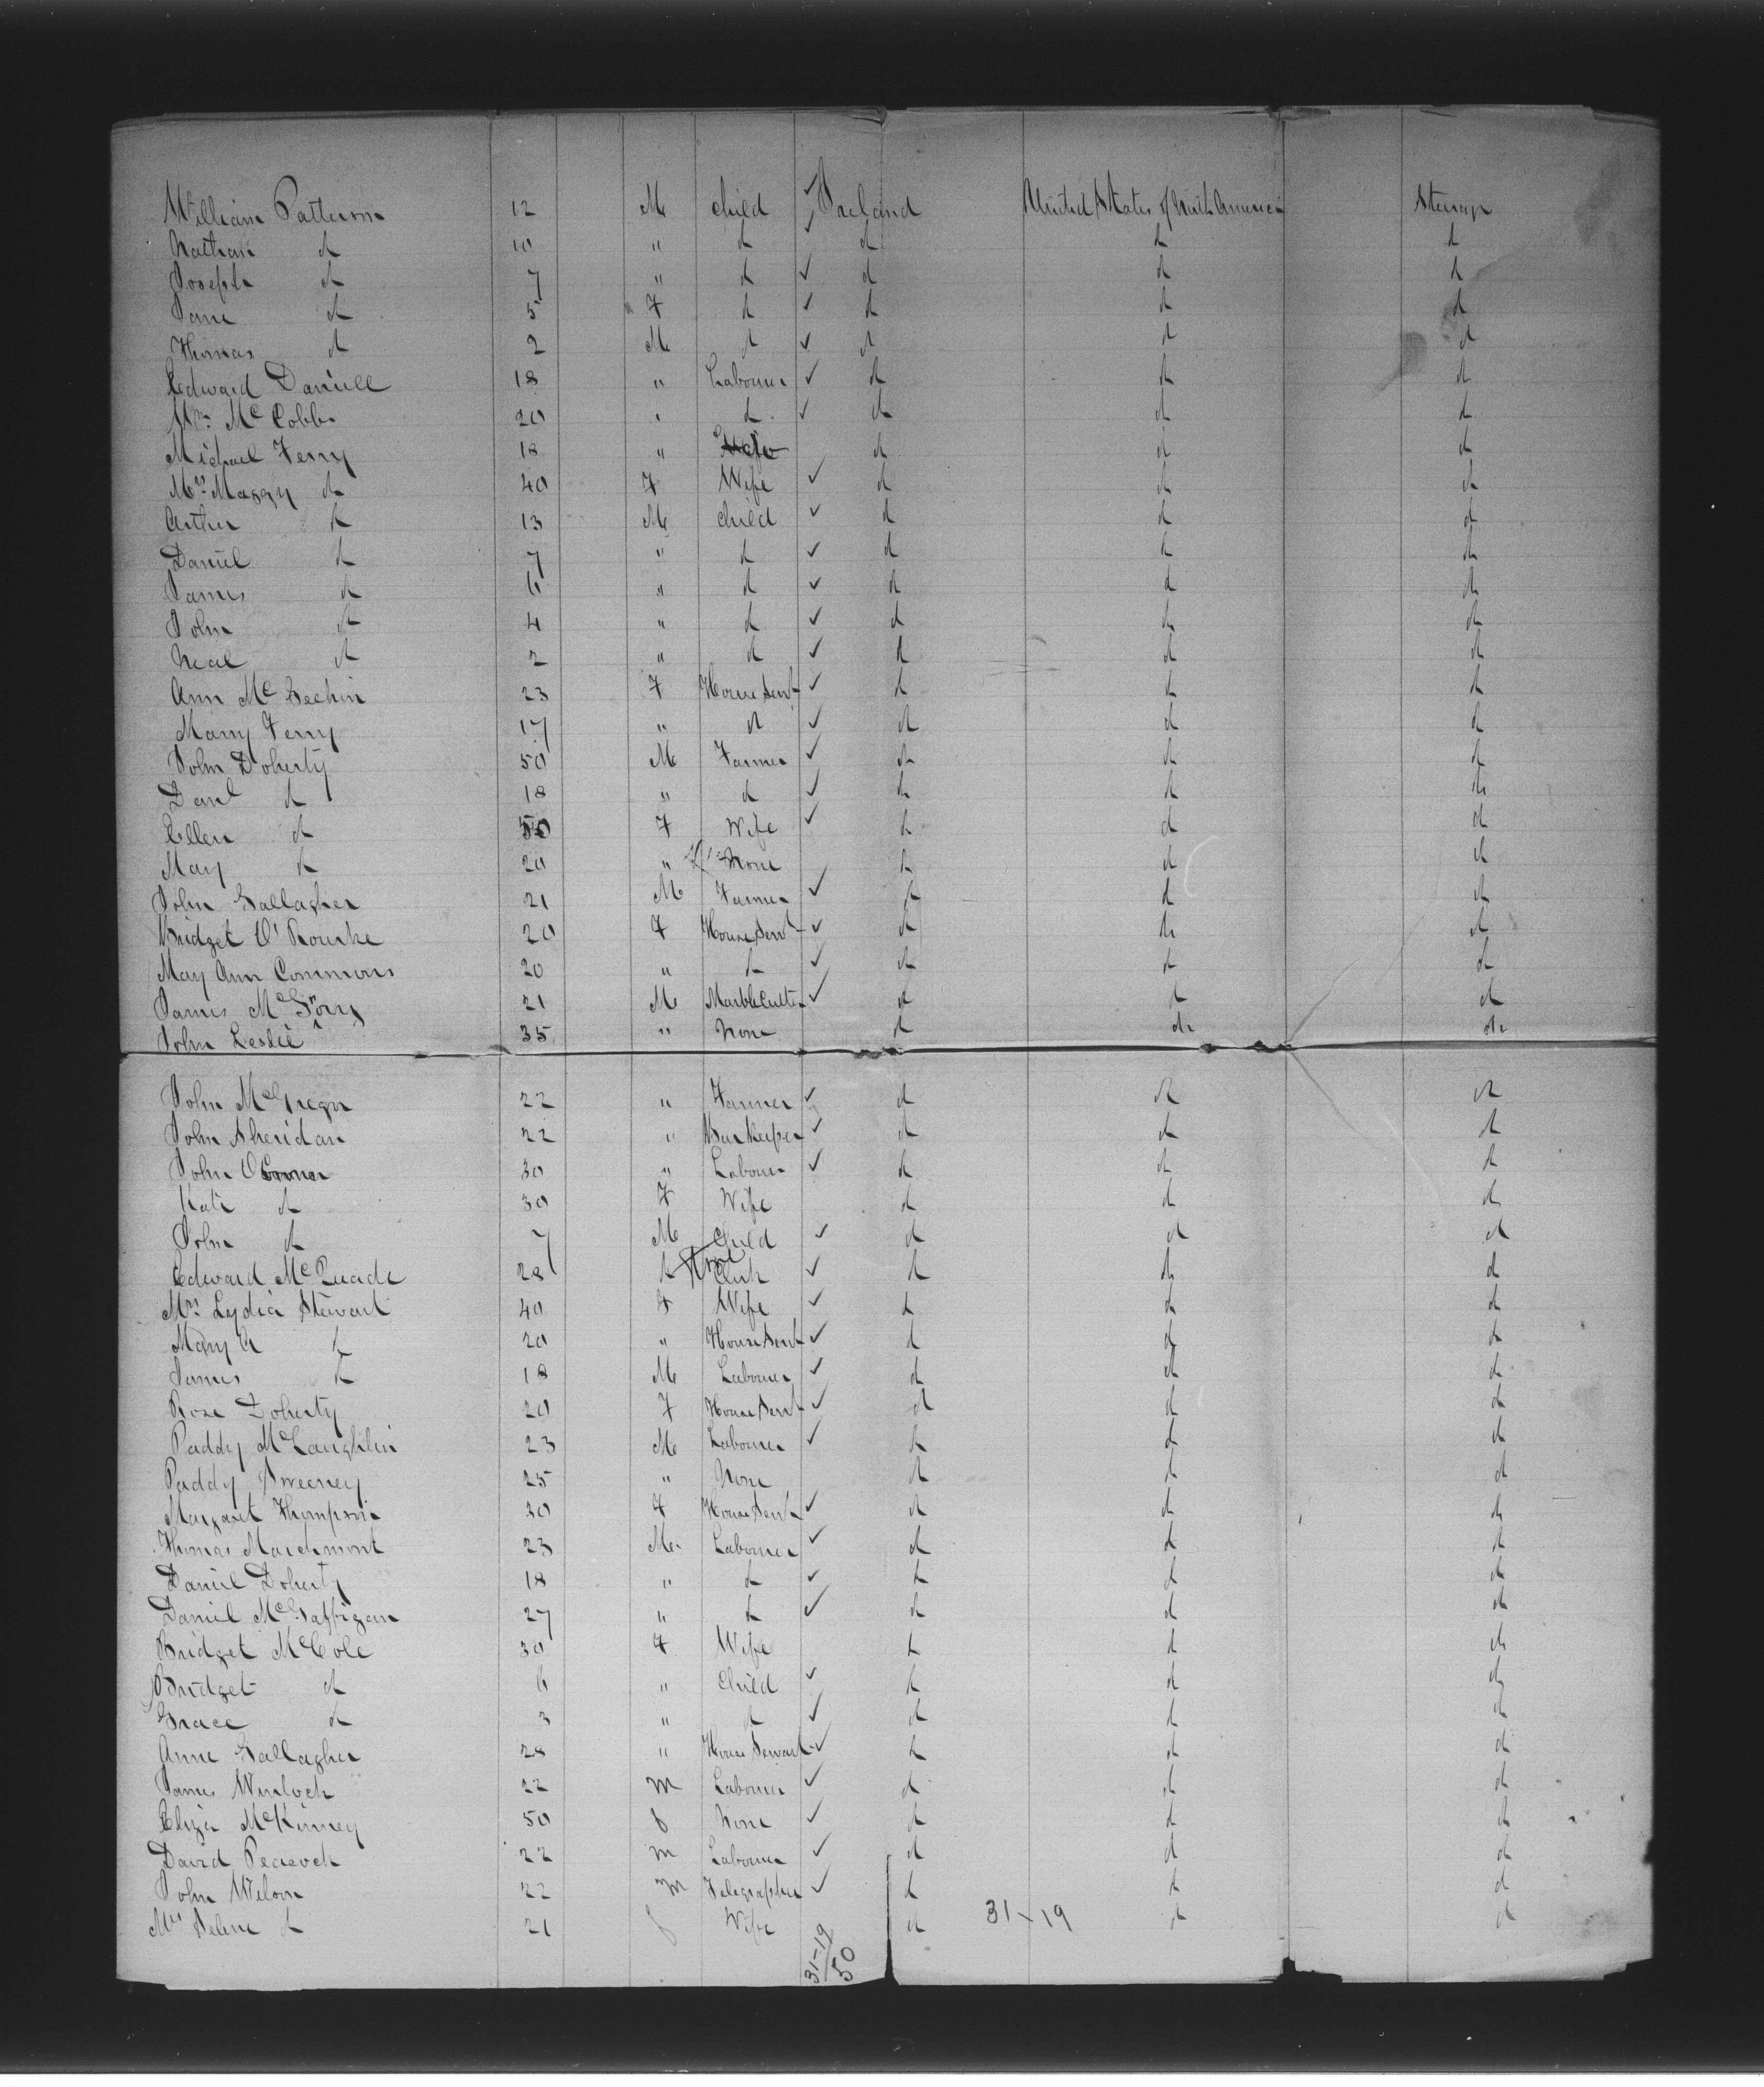 William Patterson 12 M child Ireland United States of North America Steerage
Nathan do 10 " do do do do
Joseph do 7 " do do do do
Jane do 5 F do do do do
Thomas do 2 M do do do do
Edward Daniell 18 " Labourer do do do
Wm McCobb 20 " do do do do
Michael Ferry 18 " do do do
Mrs Maggy do 40 F Wife do do do
Arthur do 13 M child do do do
Daniel do 7 " do do do do
James do 6 " do do do do
John do 4 " do do do do
Neal do 2 " do do do do
Ann McGechin 23 F House Servt do do do
Mary Ferry 17 " do do do do
John Doherty 50 M Farmer do do do
Danl do 18 " do do do do
Ellen do 50 F Wife do do do
Mary do 20 " None do do do
John Gallagher 21 M Farmer do do do
Bridget O'Rourke 20 F House Servt do do do
Mary Ann Commons 20 " do do do do
James McGorry 21 M Marble Cutter do do do
John Leslie 35 " None do do do
John McGregor 22 " Farmer do do do
John Sheridan 22 " Bar Keeper do do do
John OConnor 30 " Labourer do do do
Kate do 30 F Wife do do do
John do 7 M Child do do do
Edward McQuade 28 Clerk do do do
Mrs Lydia Stewart 40 F Wife do do do
Mary A do 20 " House Servt do do do
James do 18 M Labourer do do do
Rose Doherty 20 F House Servt do do do
Paddy McLaughlin 23 M Labourer do do do
Paddy Sweeney 25 " None do do do
Margaret Thompson 30 F House Servt do do do
Thomas Marchmont 23 M Labourer do do do
Daniel Doherty 18 " do do do do
Daniel McGaffigan 27 " do do do do
Bridget McCole 30 F Wife do do do
Bridget do 6 " Child do do do
Grace do 3 " do do do do
Anne Gallagher 28 " House Servant do do do
James 22 m Labourer do do do
Eliza McKinney 50 f None do do do
David Peacock 22 m Labourer do do do
John Wilson 22 m Telegrapher do do do
Mrs do 21 f Wife do 31-19 do do
31-19
50